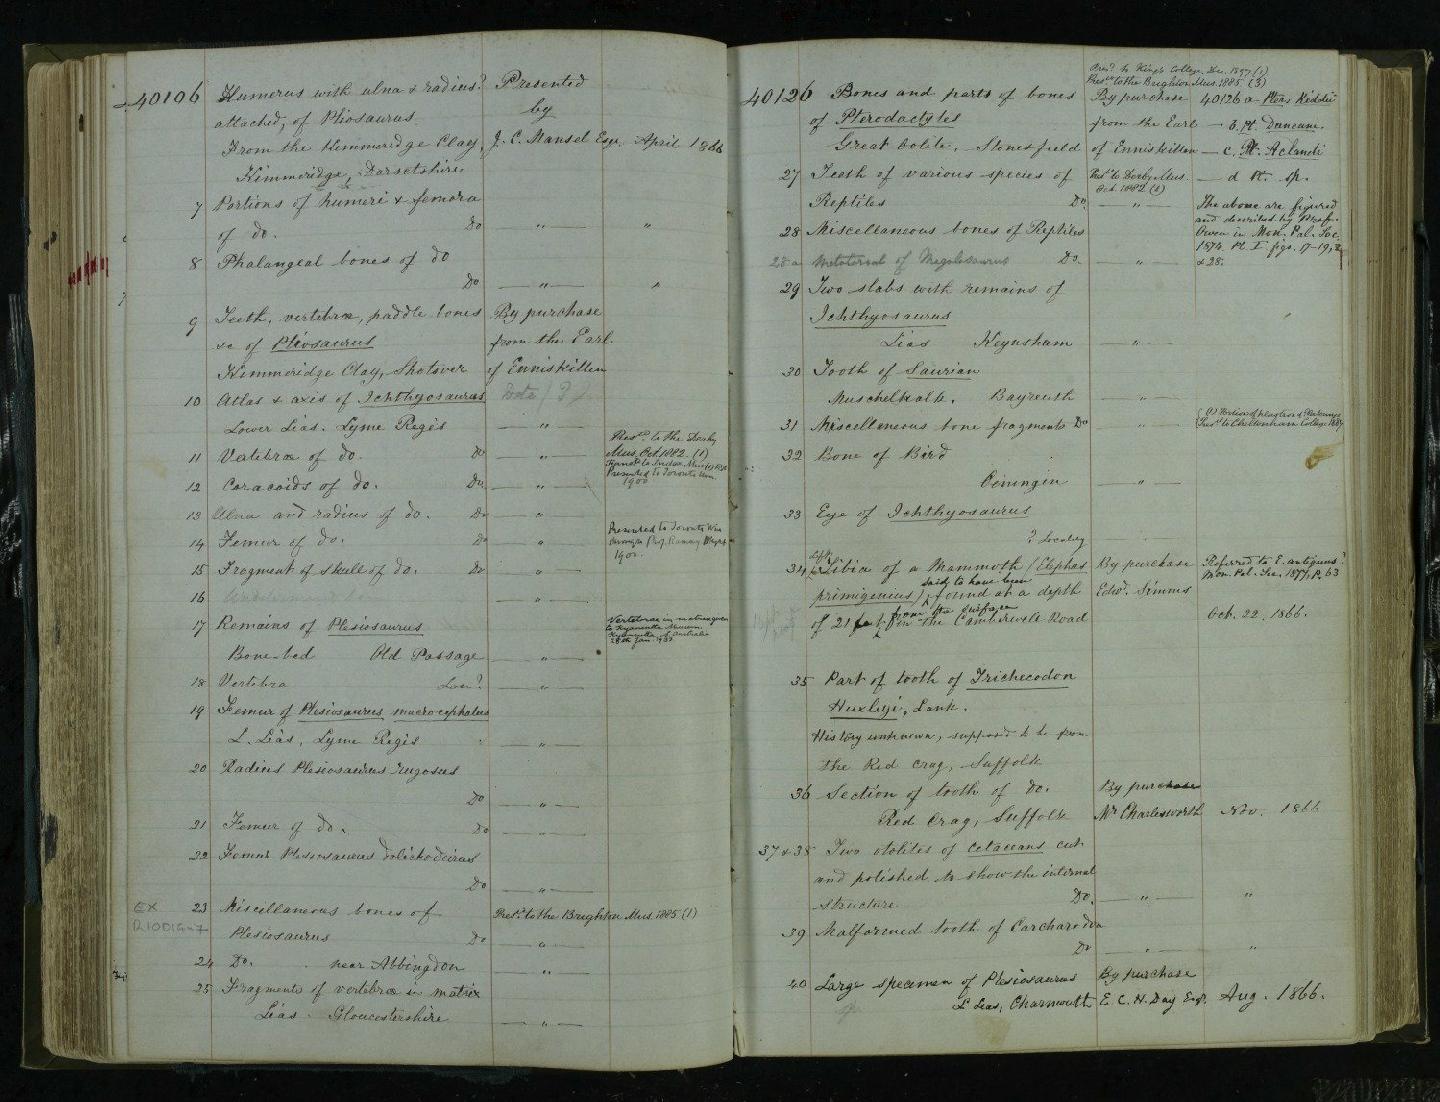 40106 Humerus with ulna & radius? Presented
attached, of Pliosaurus. by
From the Kimmeridge Clay, J. C. Mansel Esqr. April 1866
Kimmeridge, Dorsetshire
7 Portions of humeri & femora
of do. Do — " — "
8 Phalangeal bones of do
Do — " — "
9 Teeth, vertebræ, paddle bones By purchase
&c of Pliosaurus from the Earl
Kimmeridge Clay, Shotover of Enniskillen
10 Atlas & axis of Ichthyosaurus Date / ?
Lower Lias. Lyme Regis — " —
Presd. to the Derby
11 Vertebræ of do. Do — " — Mus. Oct 1882. (1)
Presented to Toronto
12 Coracoids of do. Do. — " — 1900
13 Ulna and radius of do. Do — "
Presented to Toronto
14 Femur of do. Do — " through Prof. Ramsay Wright
15 Fragment of skull of do. Do — "
16 — " —
17 Remains of Plesiosaurus Vertebræ in matrix given
to Kyancutta Museum
Kyancutta, S. Australia
Bone-bed Old Passage — " —
18 Vertebra Loc? — " —
19 Femur of Plesiosaurus macrocephalus
L. Lias, Lyme Regis — " —
20 Radius Plesiosaurus rugosus
Do — " —
21 Femur of do. Do — " —
22 Femur Plesiosaurus dolichodeirus
Do — " —
EX 23 Miscellaneous bones of Presd. to the Brighton Mus. 1885 (1)
Plesiosaurus Do — " —
24 Do. near Abbingdon — " —
25 Fragments of vertebræ in matrix
Lias. Gloucestershire — " —
Presd. to King's College, Dec. 1897 (1)
Presd. to the Brighton Mus. 1885 (3)
40126 Bones and parts of bones By purchase 40126 a — Pter. Kiddii
of Pterodactyles from the Earl — b. Pt. Duncani.
Great Oolite, Stonesfield of Enniskillen — c. Pt. Aclandi
27 Teeth of various species of Presd. to Derby Mus. — d Pt. sp.
Oct. 1882 (2)
Reptiles Do. — " — The above are figured
and described by Prof.
28 Miscellaneous bones of Reptiles Owen in Mon. Pal. Soc.
1874. Pl. I figs. 17-19,
28a Metatarsal of Megalosaurus Do. — " — & 28.
29 Two slabs with remains of
Ichthyosaurus
Lias Keynsham — " —
30 Tooth of Saurian
Muschelkalk. Bayreuth — " —
31 Miscellaneous bone fragments Do — " — Presd. to Cheltenham College 1887
32 Bone of Bird
Oeningen — " —
33 Eye of Ichthyosaurus
? Locality
left
34 Tibia of a Mammoth (Elephas By purchase Referred to E. antiquus?
Mon. Pal. Soc. 1877, P. 63
said to have been
primigenius) found at a depth Edwd. Simms
from the surface
of 21 feet in the Camberwell Road Oct. 22. 1866.
35 Part of tooth of Trichecodon
Huxleyi, Lank.
History unknown, supposed to be from
the Red Crag, Suffolk
36 Section of tooth of do. By purchase
Red Crag, Suffolk Mr Charlesworth Nov. 1866
37 & 38 Two otolites of Cetaceans cut
and polished to show the internal
structure. Do. — " — "
39 Malformed tooth of Carcharodon
Do — " — "
40 Large specimen of Plesiosaurus By purchase
L Lias, Charmouth E. C. H. Day Esqr. Aug. 1866.